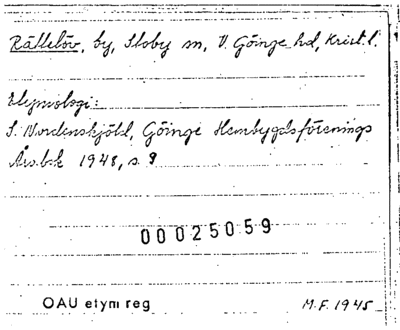 Rättelöv, by, Stoby sn, V. Göinge hd, Krist. l.
Etymologi:
S. Nordenskjöld, Göinge Hembygdsförenings
Årsbok 1948, s. 9
00025059
OAU etym reg M.F. 1945